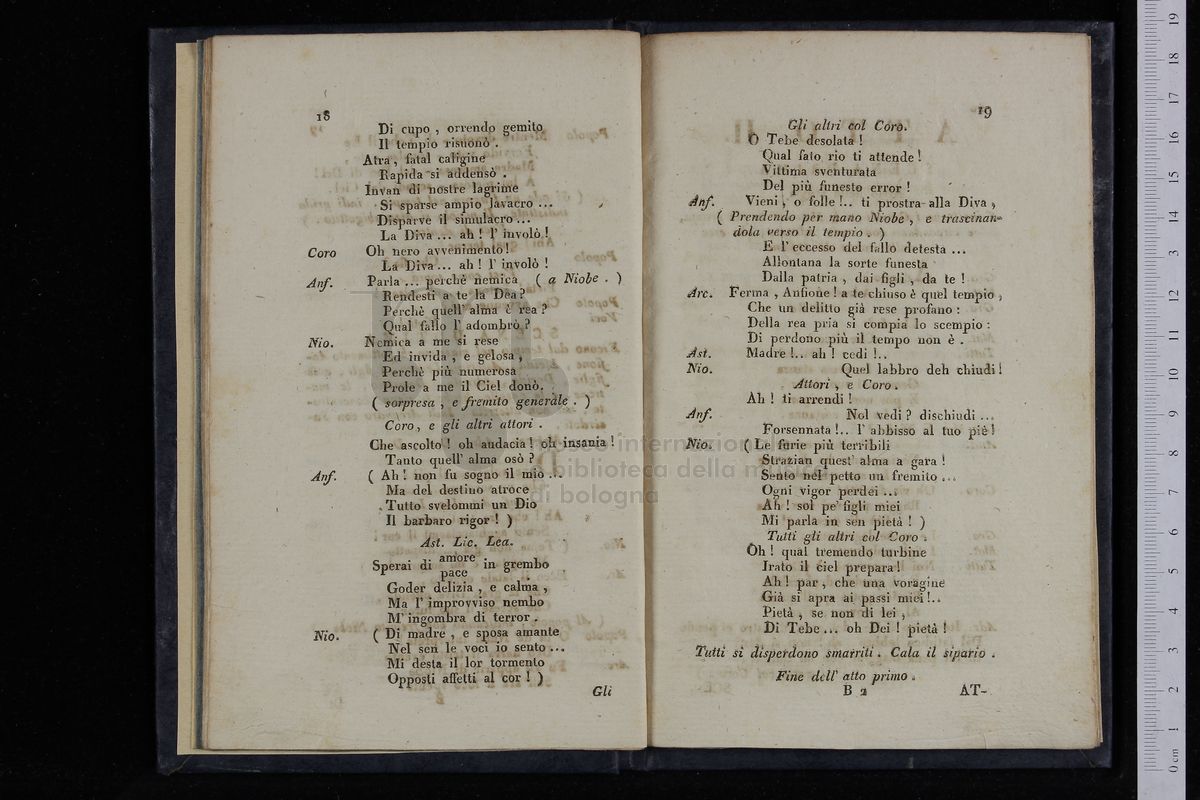 18
Di cupo , orrendo gemito
Il tempio risuonò .
Atra , fatal caligine
Rapida si addensò .
Invan di nostre lagrime
Si sparse ampio lavacro ...
Disparve il simulacro ...
La Diva ... ah ! l' involò !
Coro Oh nero avvenimento !
La Diva ... ah ! l' involò !
Anf. Parla ... perchè nemica ( a Niobe . )
Rendesti a te la Dea ?
Perchè quell' alma è rea ?
Qual fallo l' adombrò ?
Nio. Nemica a me si rese
Ed invida , e gelosa ,
Perchè più numerosa
Prole a me il Ciel donò.
( sorpresa , e fremito generale . )
Coro , e gli altri attori .
Che ascolto ! oh audacia ! oh insania !
Tanto quell' alma osò ?
Anf. ( Ah ! non fu sogno il mio ...
Ma del destino atroce
Tutto svelommi un Dio
Il barbaro rigor ! )
Ast. Lic. Lea.
Sperai di amore pace in grembo
Goder delizia , e calma ,
Ma l' improvviso nembo
M' ingombra di terror .
Nio. ( Di madre , e sposa amante
Nel sen le voci io sento ...
Mi desta il lor tormento
Opposti affetti al cor ! )
Gli
19
Gli altri col Coro.
O Tebe desolata !
Qual fato rio ti attende !
Vittima sventurata
Del più funesto error !
Anf. Vieni , o folle !.. ti prostra alla Diva ,
( Prendendo per mano Niobe , e trascinan-
dola verso il tempio . )
E l' eccesso del fallo detesta ...
Allontana la sorte funesta
Dalla patria , dai figli , da te !
Arc. Ferma , Anfione ! a te chiuso è quel tempio ,
Che un delitto già rese profano :
Della rea pria si compia lo scempio :
Di perdono più il tempo non è .
Ast. Madre !.. ah ! cedi !..
Nio. Quel labbro deh chiudi !
Attori , e Coro .
Ah ! ti arrendi !
Anf. Nol vedi ? dischiudi ...
Forsennata !.. l' abbisso al tuo piè !
Nio. ( Le furie più terribili
Strazian quest' alma a gara !
Sento nel petto un fremito ...
Ogni vigor perdei ...
Ah ! sol pe' figli miei
Mi parla in sen pietà ! )
Tutti gli altri col Coro .
Oh ! qual tremendo turbine
Irato il ciel prepara !
Ah ! par , che una voragine
Già si apra ai passi miei !..
Pietà , se non di lei ,
Di Tebe ... oh Dei ! pietà !
Tutti si disperdono smarriti . Cala il sipario .
Fine dell' atto primo .
B 2 AT-
museo internazionale
biblioteca della musica
di bologna
0 cm 1 2 3 4 5 6 7 8 9 10 11 12 13 14 15 16 17 18 19